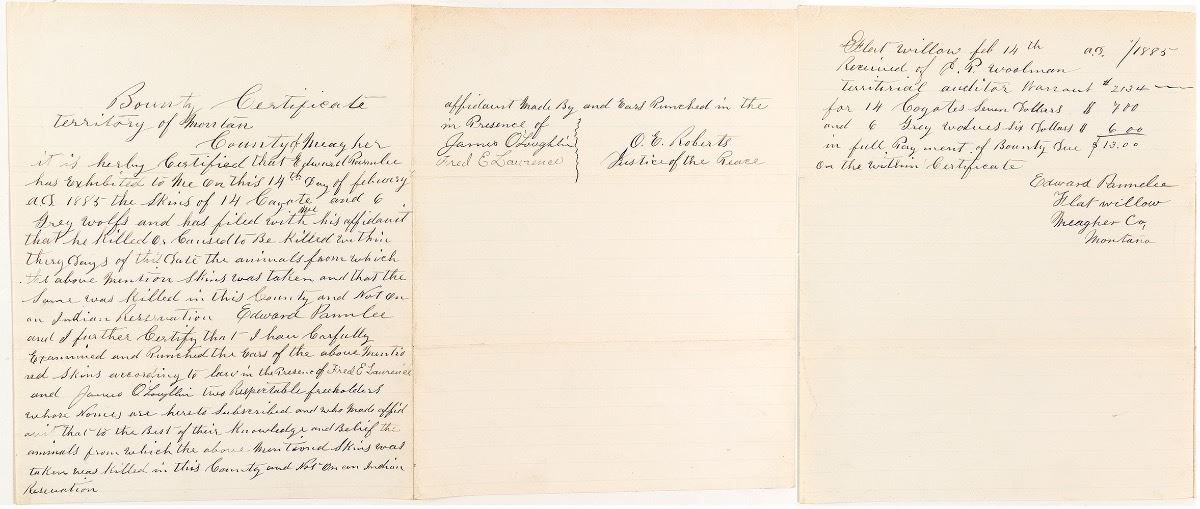 Bounty Certificate
territory of Montan
County of Meagher
it is herby Certified that Edward Parmlee
has Exhibited to Me On this 14th Day of febuary
A.D. 1885 the Skins of 14 Cayote and 6
Grey Wolfs and has filed with me his affidavit
that he Killed Or Caused to Be Killed within
thery Days of this Date the animals from which
the above Mention Skins was taken and that the
Same was Killed in this County and Not On
an Indian Reservation Edward Parmlee
and I further Certify that I hav Carfully
Examined and Punched the Ears of the above Mentio
ned Skins according to law in the Presence of Fred E Lawrence
and James O'Loughlin two Respectable freeholders
whose Names are hereto Subscribed and who Made affid
avit that to the Best of their Knowledge and Belief the
animals from which the above Mentioned Skins was
taken was Killed in this County and Not On an Indian
Reservation
affidavit Made By and Ears Punched in the
in Presence of
James O'Loughlin
Fred E Lawrence
O. E. Roberts
Justice of the Peace
Flat Willow feb 14th A.D. 1885
Received of J. P. Woolman
territirial auditor Warrant # 2134
for 14 Coyotes Seven Dollars $ 7 00
and 6 Grey Wolves Six Dollars $ 6 00
in full Payment of Bounty Due $ 13.00
On the within Certificate
Edward Parmelee
Flat willow
Meagher Co,
Montana